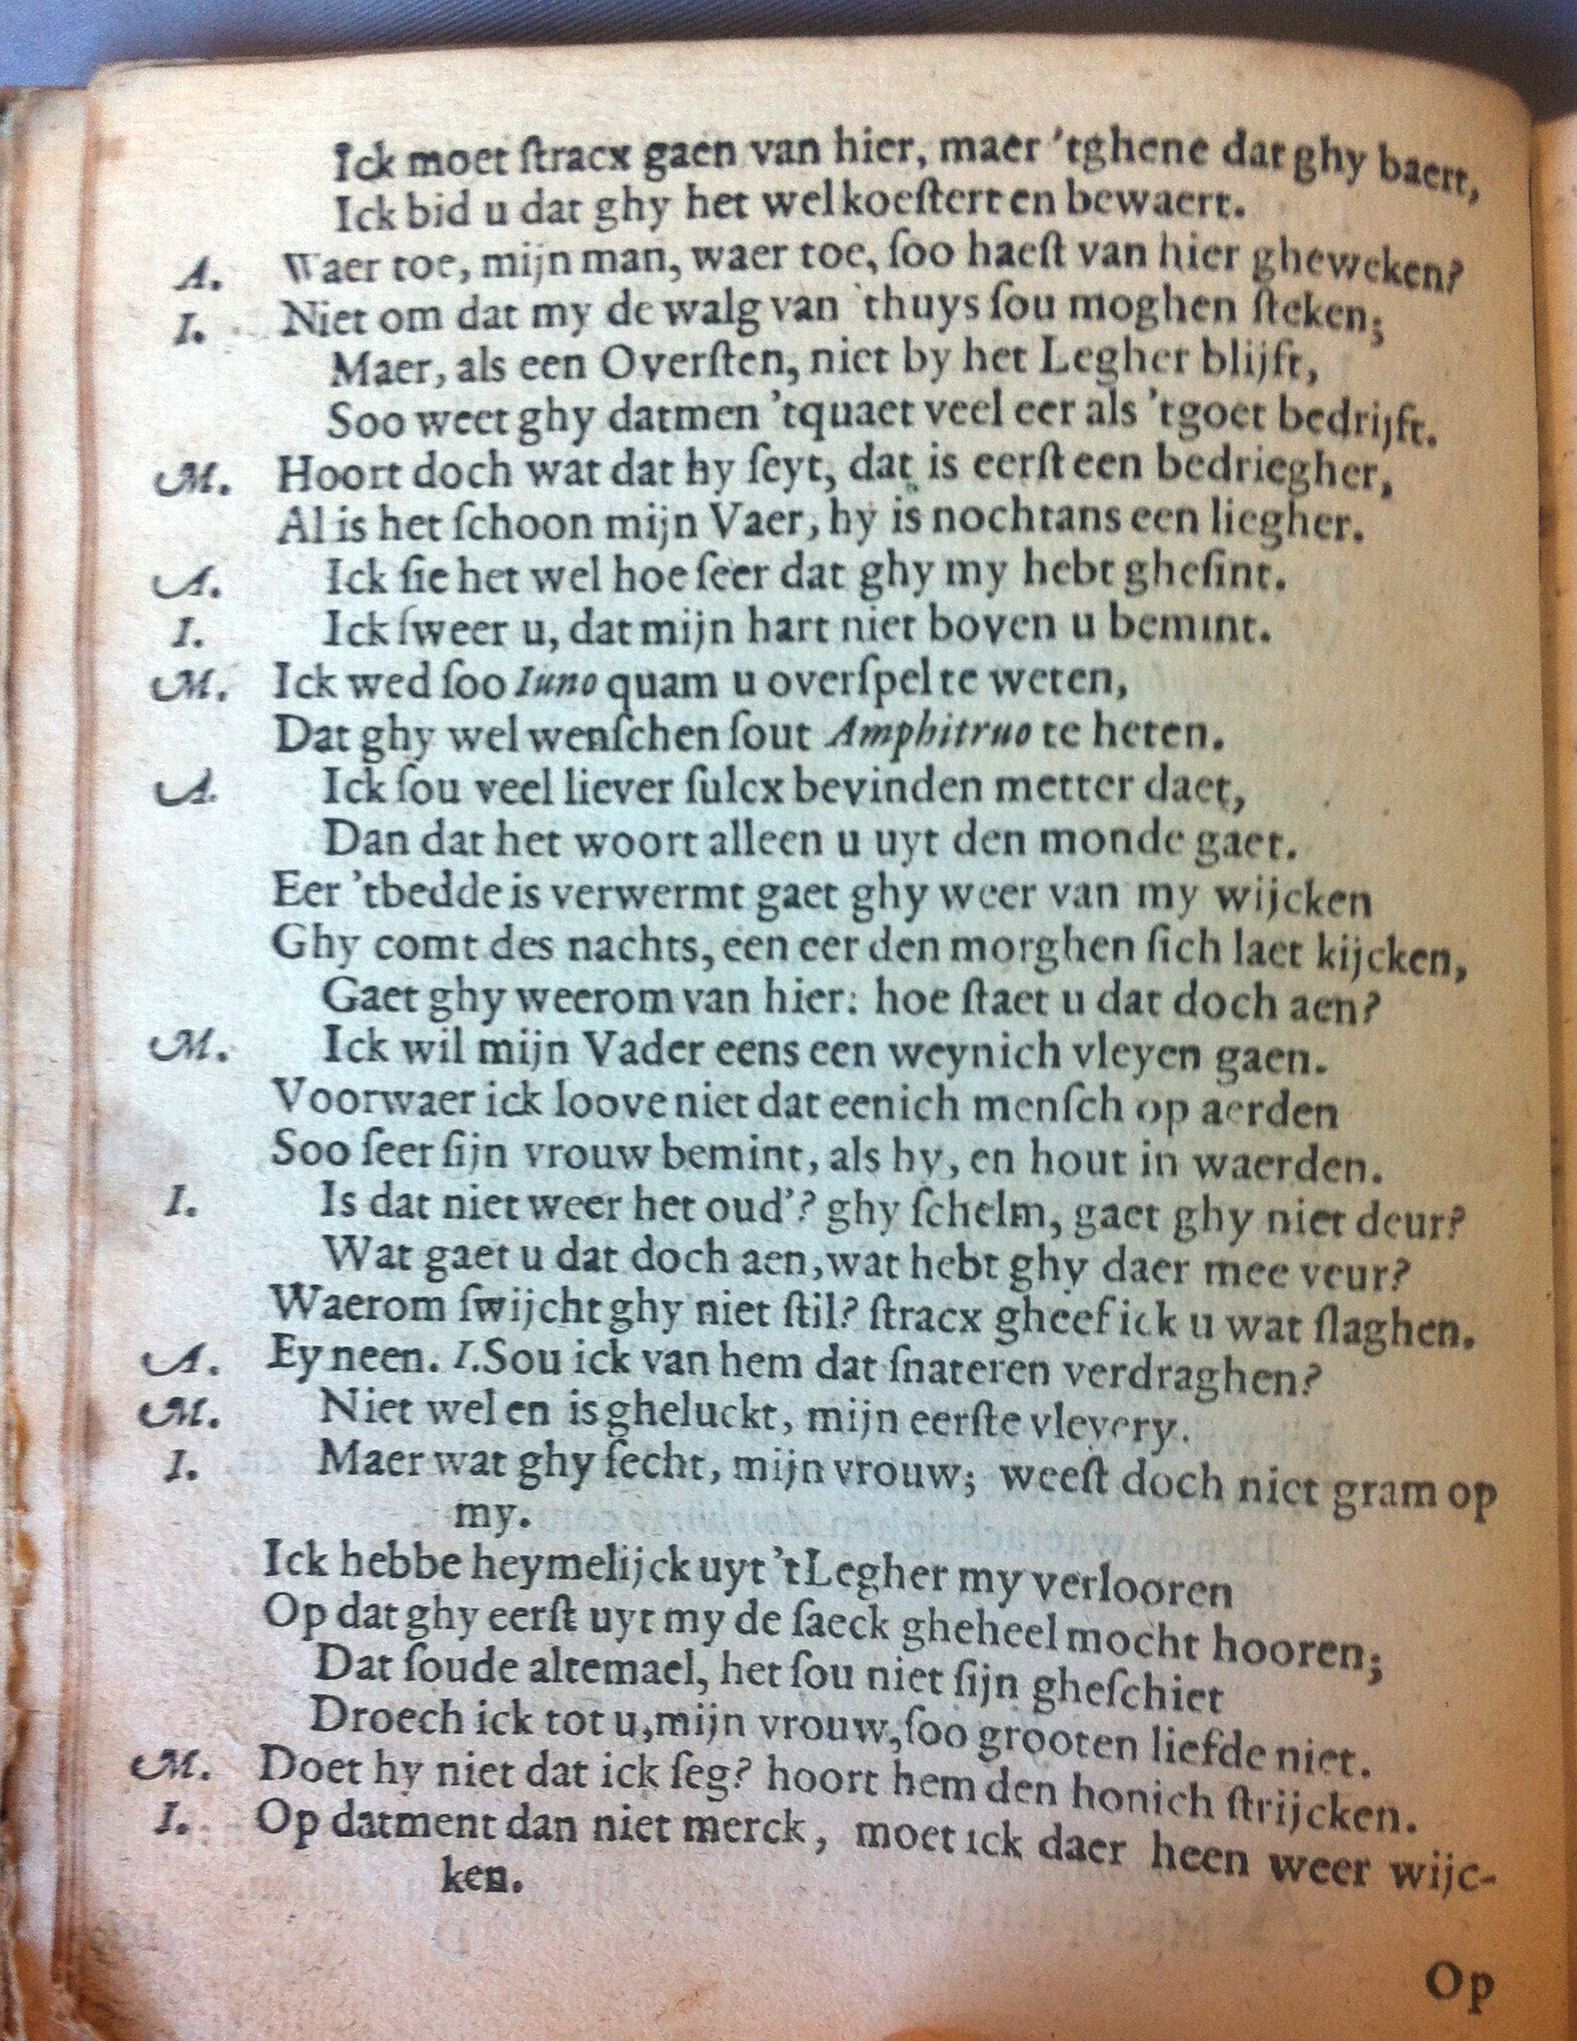 Ick moet ſtracx gaen van hier, maer 'tghene dat ghy baert,
Ick bid u dat ghy het wel koeſtert en bewaert.
A. Waer toe, mijn man, waer toe, ſoo haeſt van hier gheweken?
I. Niet om dat my de walg van 'thuys ſou moghen ſteken;
Maer, als een Overſten, niet by het Legher blijft,
Soo weet ghy datmen 'tquaet veel eer als 'tgoet bedrijft.
M. Hoort doch wat dat hy ſeyt, dat is eerſt een bedriegher,
Al is het ſchoon mijn Vaer, hy is nochtans een liegher.
A. Ick ſie het wel hoe ſeer dat ghy my hebt gheſint.
I. Ick ſweer u, dat mijn hart niet boven u bemint.
M. Ick wed ſoo Iuno quam u overſpel te weten,
Dat ghy wel wenſchen ſout Amphitruo te heten.
A. Ick ſou veel liever ſulcx bevinden metter daet,
Dan dat het woort alleen u uyt den monde gaet.
Eer 'tbedde is verwermt gaet ghy weer van my wijcken
Ghy comt des nachts, een eer den morghen ſich laet kijcken,
Gaet ghy weerom van hier: hoe ſtaet u dat doch aen?
M. Ick wil mijn Vader eens een weynich vleyen gaen.
Voorwaer ick loove niet dat eenich menſch op aerden
Soo ſeer ſijn vrouw bemint, als hy, en hout in waerden.
I. Is dat niet weer het oud'? ghy ſchelm, gaet ghy niet deur?
Wat gaet u dat doch aen, wat hebt ghy daer mee veur?
Waerom ſwijcht ghy niet ſtil? ſtracx gheef ick u wat ſlaghen.
A. Ey neen. I. Sou ick van hem dat ſnateren verdraghen?
M. Niet wel en is gheluckt, mijn eerſte vleyery.
I. Maer wat ghy ſecht, mijn vrouw; weeſt doch niet gram op
my.
Ick hebbe heymelijck uyt 'tLegher my verlooren
Op dat ghy eerſt uyt my de ſaeck gheheel mocht hooren;
Dat ſoude altemael, het ſou niet ſijn gheſchiet
Droech ick tot u, mijn vrouw, ſoo grooten liefde niet.
M. Doet hy niet dat ick ſeg? hoort hem den honich ſtrijcken.
I. Op datment dan niet merck, moet ick daer heen weer wijc-
ken.
Op